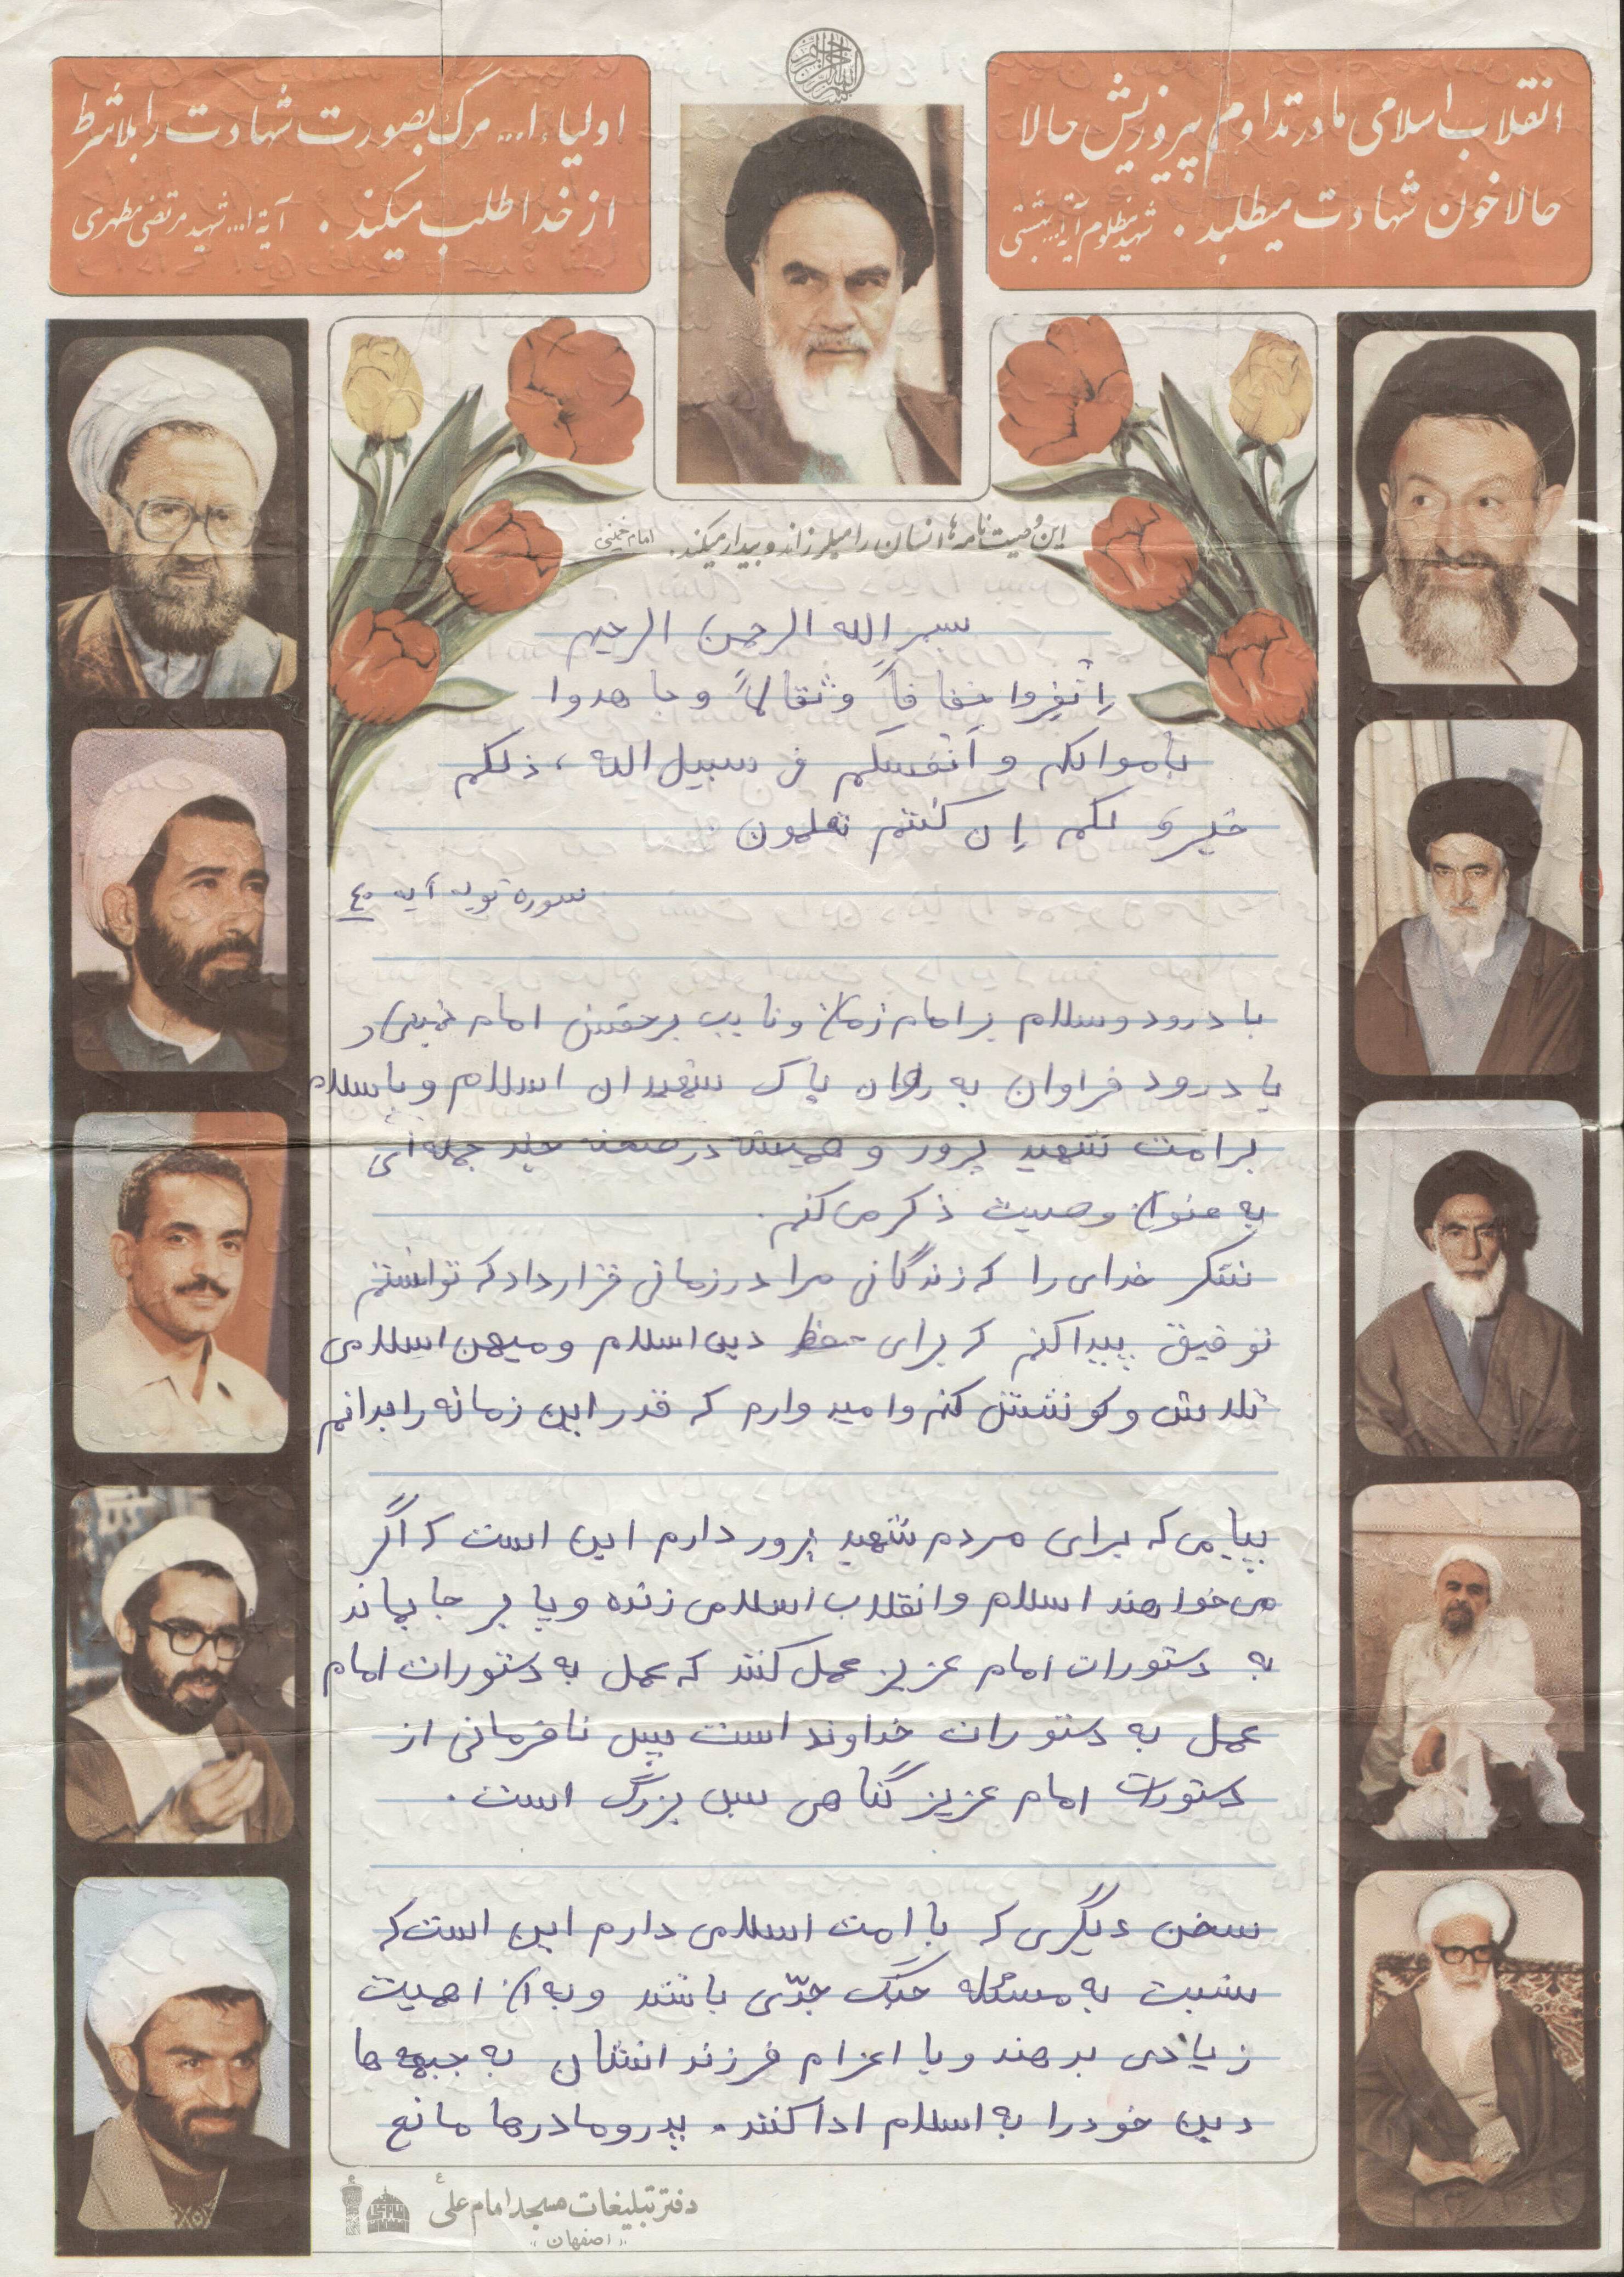 انقلاب اسلامی ما در تداوم پیروزیش حالا
حالا خون شهادت میطلبد . شهید مظلوم آیة ا... بهشتی
اولیاء ا... مرگ بصورت شهادت را بلاشرط
از خدا طلب میکند . آیة ا... شهید مرتضی مطهری
این وصیت نامه ها انسان را میلرزاند و بیدار میکند. امام خمینی
بسم الله الرحمن الرحیم
اِنْفِروا خفافاً وثقالاً وجاهدوا
باموالکم و اَنْفسکم فی سبیل الله ، ذلکم
خیرٌ لکم اِن کنتم تعلمون .
سوره توبه آیه ٤٠
با درود وسلام بر امام زمان ونایب برحقش امام خمینی و
با درود فراوان به روان پاک شهیدان اسلام و باسلام
بر امت شهید پرور و همیشه در صحنه چند جمله ای
به عنوان وصیت ذکر می کنم .
شکر خدای را که زندگانی مرا در زمانی قرار داد که توانستم
توفیق پیدا کنم که برای حفظ دین اسلام و میهن اسلامی
تلاش و کوشش کنم و امیدوارم که قدر این زمانه را بدانم
پیامی که برای مردم شهید پرور دارم این است که اگر
می خواهند اسلام و انقلاب اسلامی زنده و پا بر جا بماند
به دستورات امام عزیز عمل کنند که عمل به دستورات امام
عمل به دستورات خداوند است پس نافرمانی از
دستورات امام عزیز گناهی بس بزرگ است .
سخن دیگری که با امت اسلامی دارم این است که
نسبت به مسئله جنگ جدّی باشند و به آن اهمیت
زیادی بدهند و با اعزام فرزندانشان به جبهه ها
دین خود را به اسلام ادا کنند . پدر و مادرها مانع
دفتر تبلیغات مسجد امام علی ع
"اصفهان"